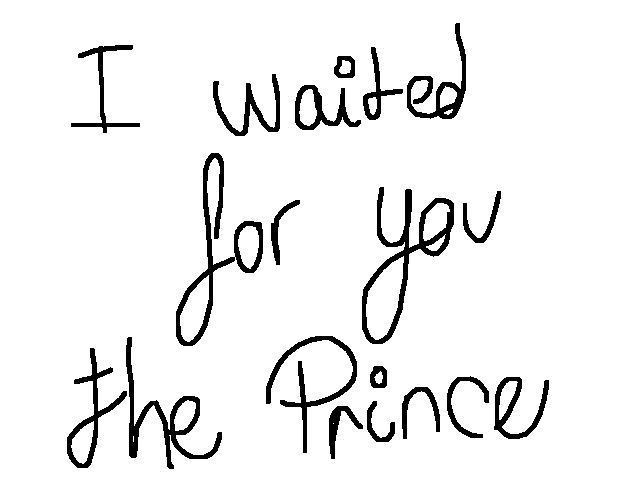 I waited
for you
the Prince